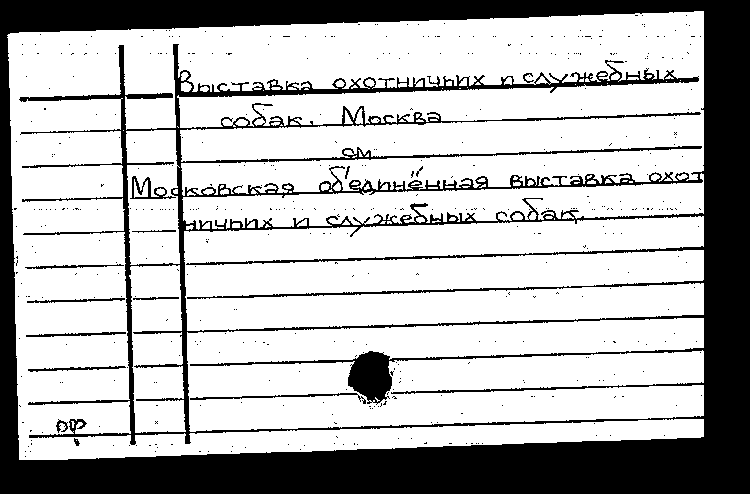 Выставка охотничьих и служебных
собак. Москва
см
Московская об'единённая выставка охот
ничьих и служебных собак.
ор